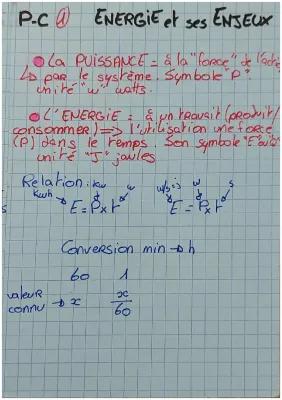 P-C ① ENERGIE et ses ENJEUX
La PUISSANCE = à la "force" de l'
↳ par le système. Symbole "P"
unité "W" watts.
L'ENERGIE = à un travail (produit/
consommer) => l'utilisation une force
(P) dans le temps. Son symbole "E"
unité "J" joules
Relation: kw w w/s=J w s
kwh E = P x t E = P x t
s
Conversion min → h
60 1
valeur x x
connu → 60